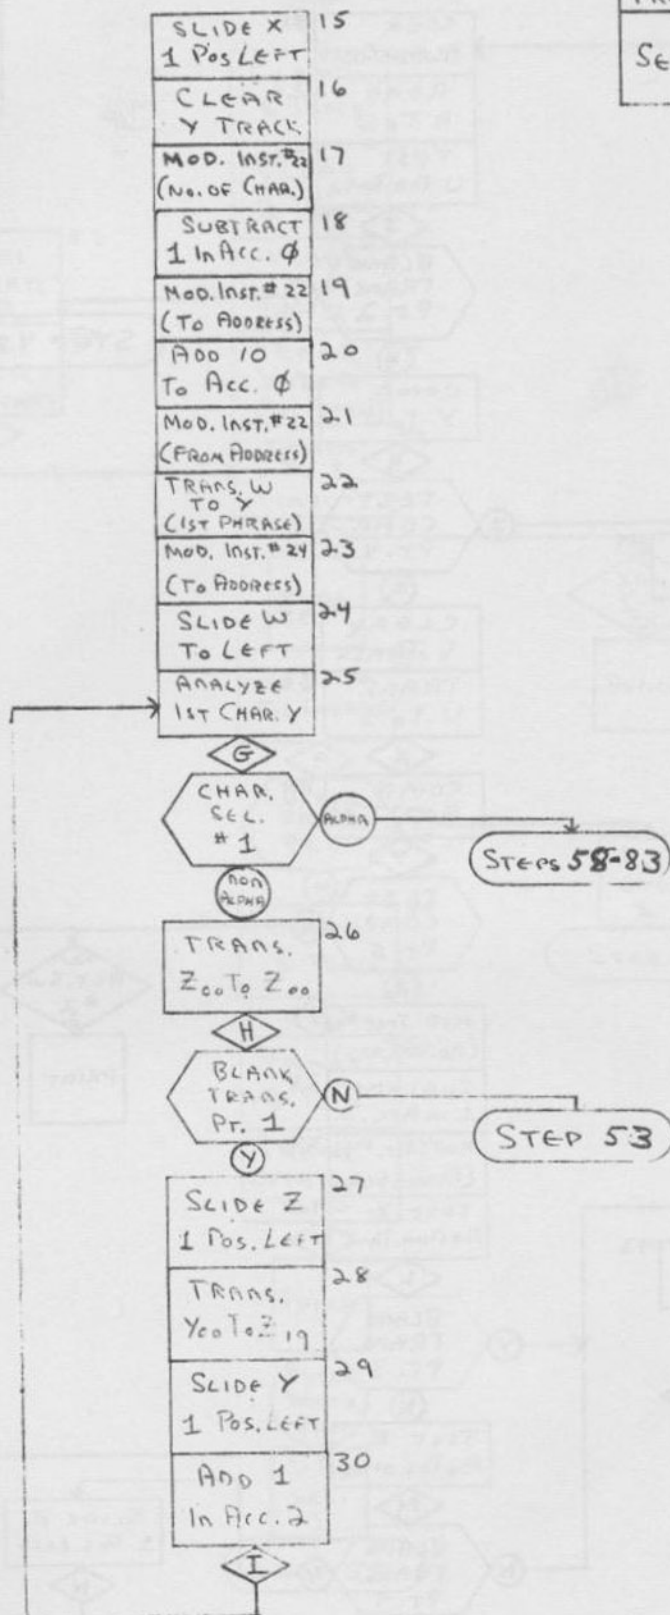 SLIDE X
1 POS LEFT
15
CLEAR
Y TRACK
16
MOD. INST. #22
(NO. OF CHAR.)
17
SUBTRACT
1 IN ACC. Ø
18
MOD. INST. #22
(TO ADDRESS)
19
ADD 10
TO ACC. Ø
20
MOD. INST. #22
(FROM ADDRESS)
21
TRANS. W
TO Y
(1ST PHRASE)
22
MOD. INST. #24
(TO ADDRESS)
23
SLIDE W
TO LEFT
24
ANALYZE
1ST CHAR. Y
25
G
CHAR.
SEL.
#1
ALPHA
STEPS 58-83
NON
ALPHA
TRANS.
Z00 TO Z00
26
H
BLANK
TRANS.
PT. 1
N
STEP 53
Y
SLIDE Z
1 POS. LEFT
27
TRANS.
Y00 TO Z19
28
SLIDE Y
1 POS. LEFT
29
ADD 1
IN ACC. 2
30
I